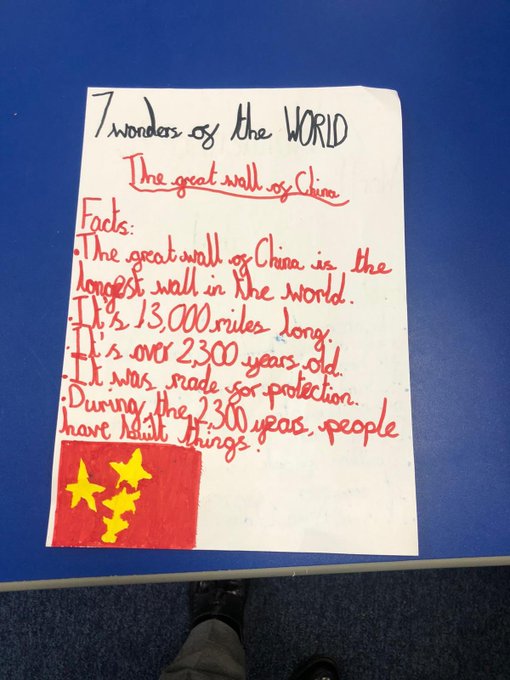 7 wonders of the WORLD
The great wall of China
Facts:
·The great wall of China is the
longest wall in the world.
·It's 13,000 miles long.
·It's over 2,300 years old.
·It was made for protection.
·During the 2,300 years, people
have built things.